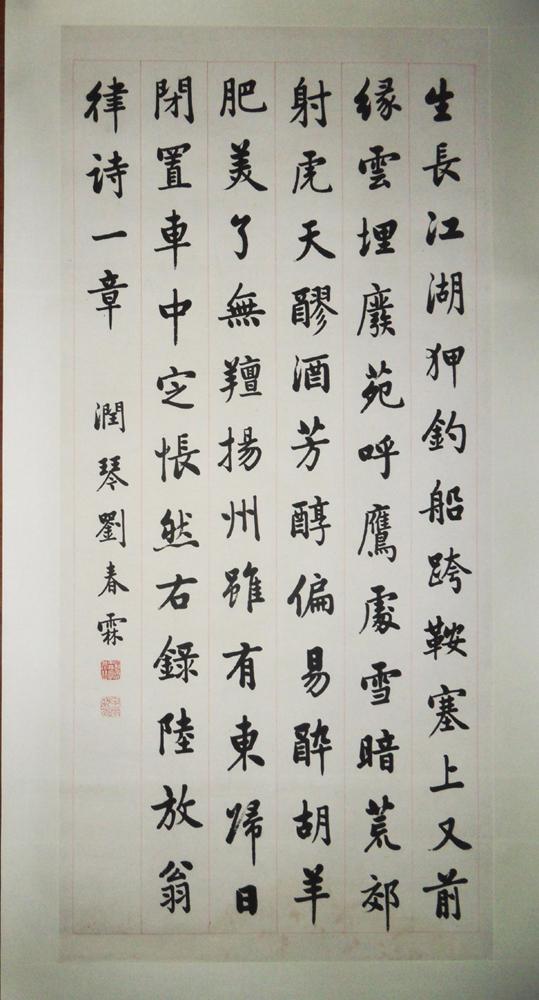 生長江湖狎釣船跨鞍塞上又前
緣雲埋廢苑呼鷹處雪暗荒郊
射虎天醪酒芳醇偏易醉胡羊
肥美了無羶揚州雖有東歸日
閉置車中定悵然右錄陸放翁
律詩一章 潤琴劉春霖